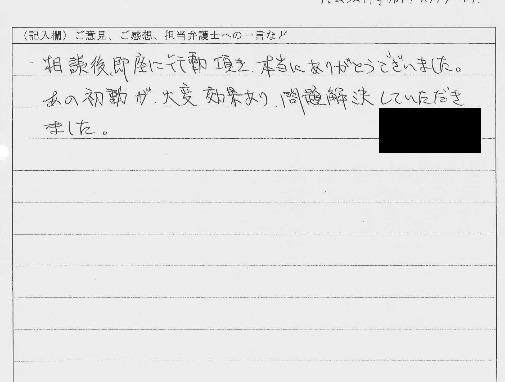 （記入欄）ご意見、ご感想、担当弁護士への一言など
相談後、即座に行動頂き、本当にありがとうございました。
あの初動が、大変効果あり、問題解決していただき
ました。